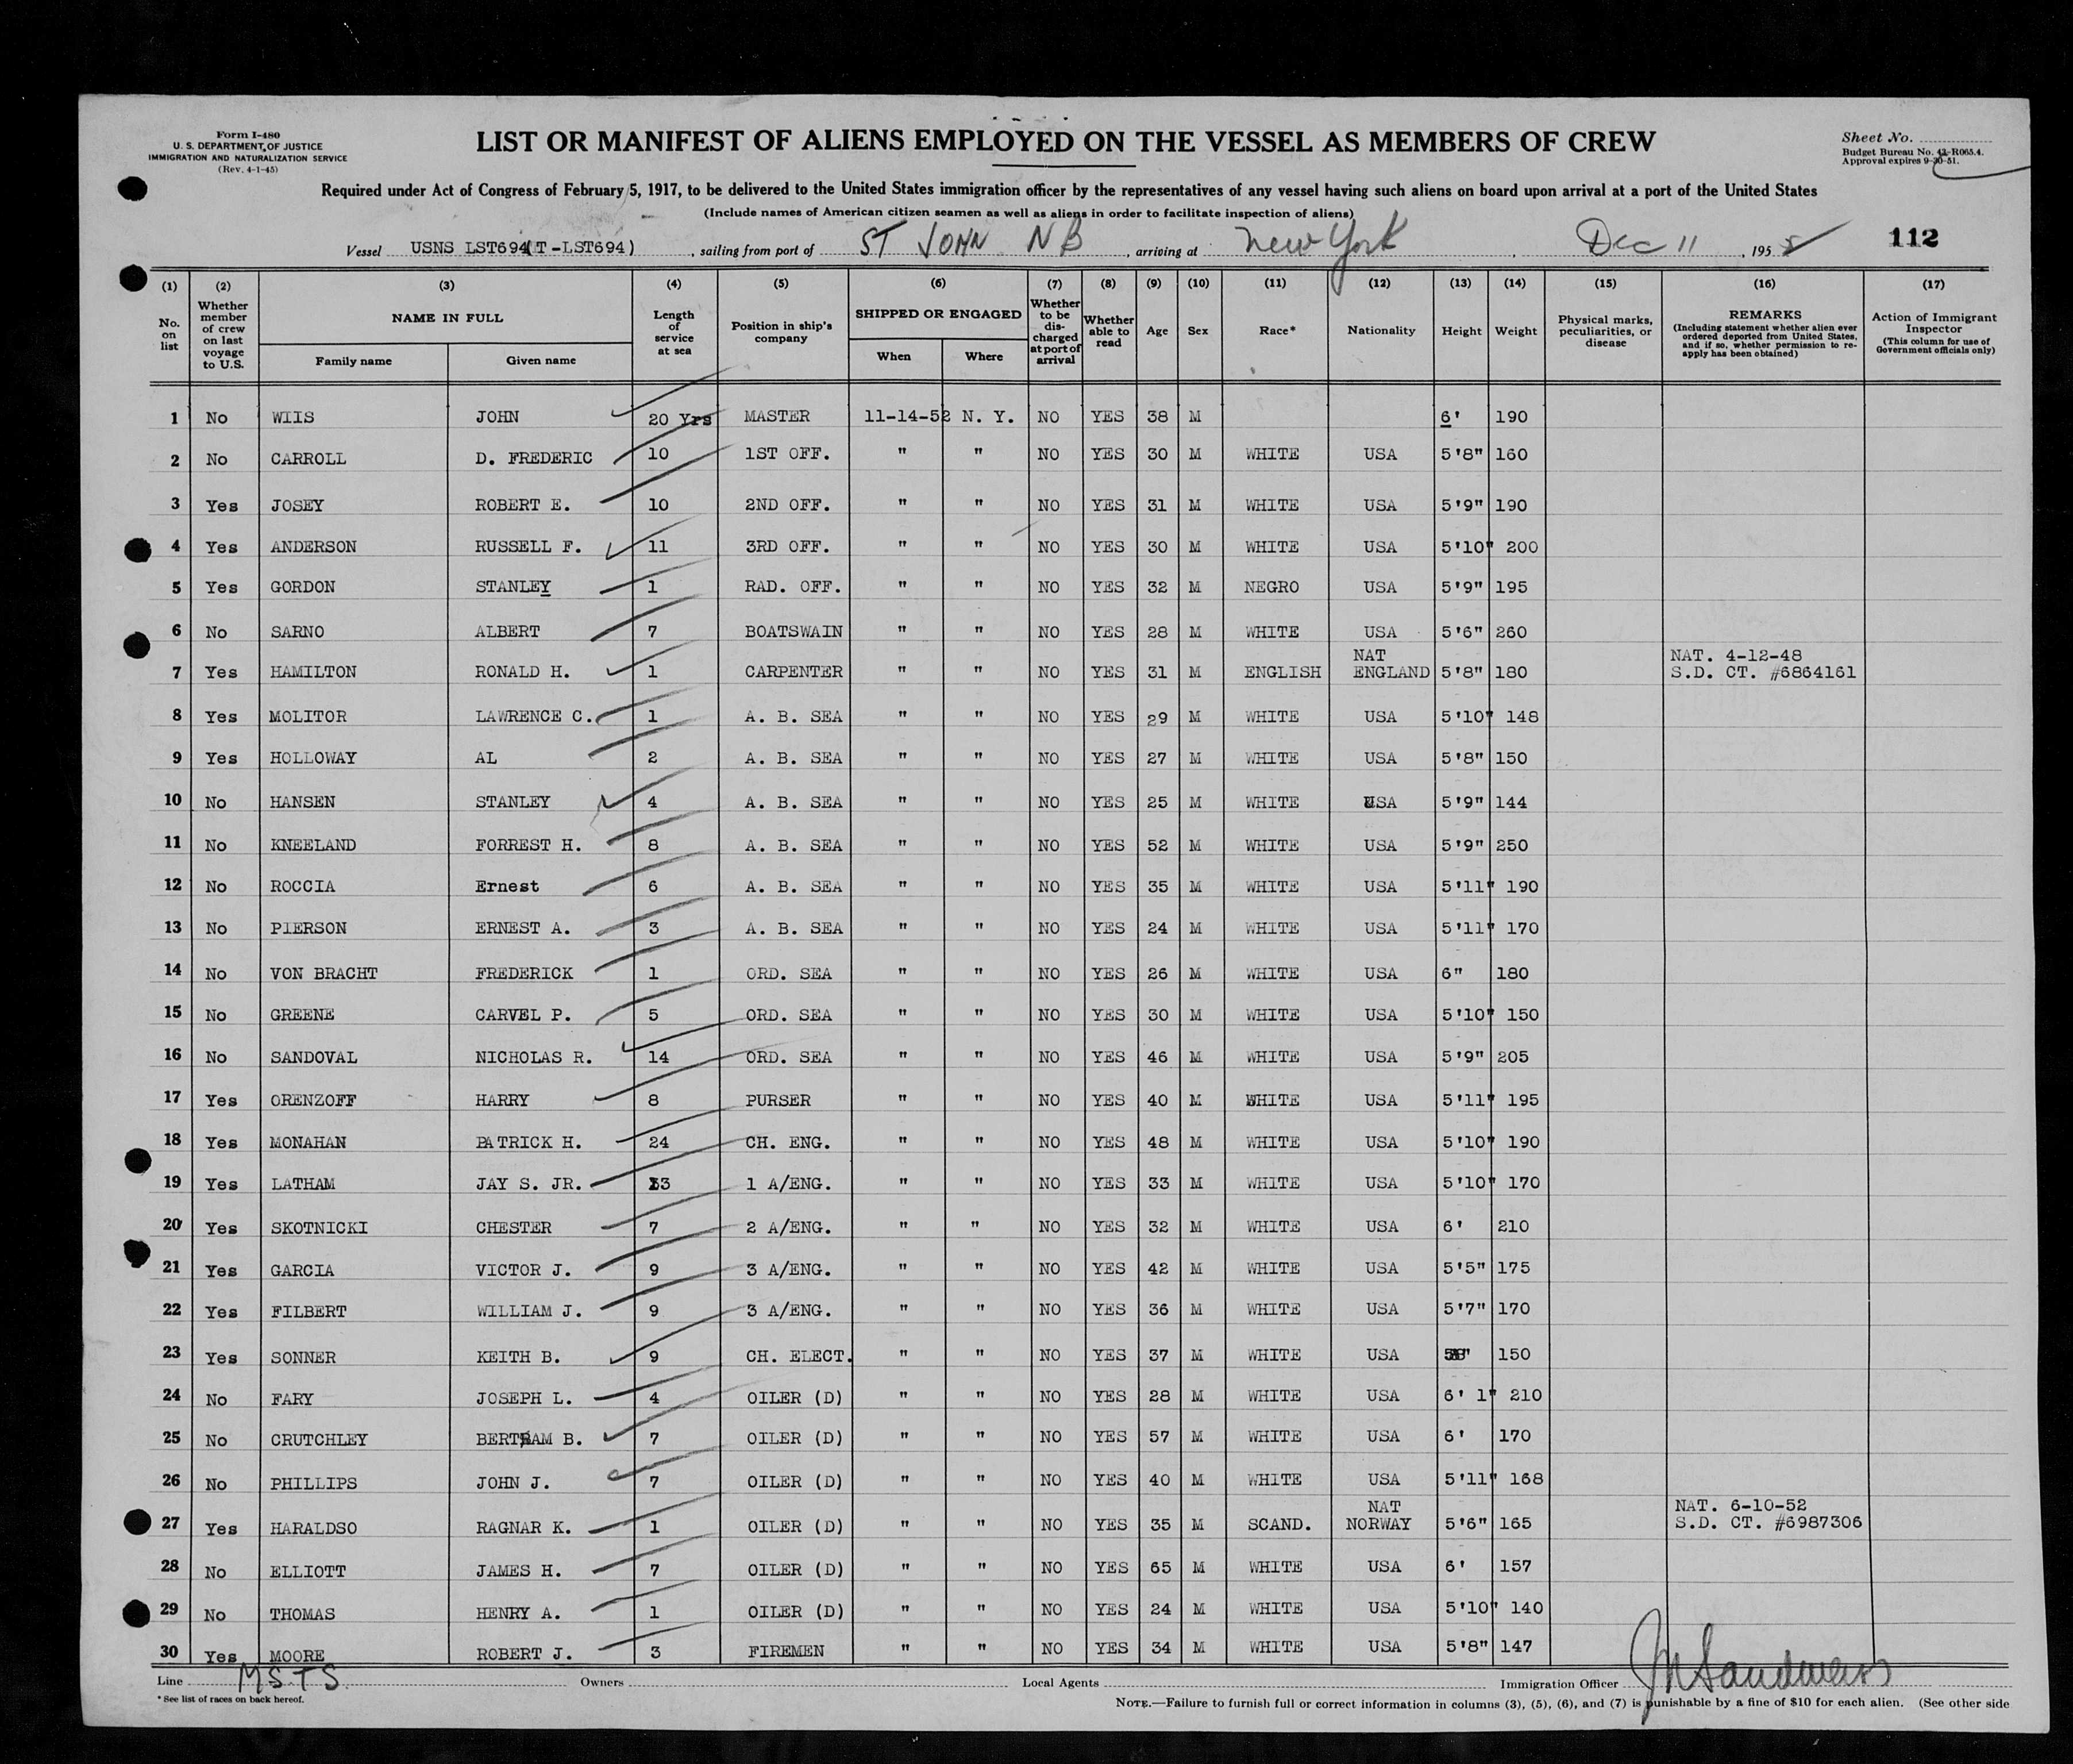 Form I-480
U. S. DEPARTMENT OF JUSTICE
IMMIGRATION AND NATURALIZATION SERVICE
(Rev. 4-1-45)
LIST OR MANIFEST OF ALIENS EMPLOYED ON THE VESSEL AS MEMBERS OF CREW
Sheet No.
Budget Bureau No. 43-R065.4.
Approval expires 9-30-51.
Required under Act of Congress of February 5, 1917, to be delivered to the United States immigration officer by the representatives of any vessel having such aliens on board upon arrival at a port of the United States
(Include names of American citizen seamen as well as aliens in order to facilitate inspection of aliens)
Vessel USNS LST694(T-LST694), sailing from port of ST JOHN NB, arriving at New York, Dec 11, 195
112
(1) No. on list
(2) Whether member of crew on last voyage to U.S.
(3) NAME IN FULL
Family name Given name
(4) Length of service at sea
(5) Position in ship's company
(6) SHIPPED OR ENGAGED
When Where
(7) Whether to be discharged at port of arrival
(8) Whether able to read
(9) Age
(10) Sex
(11) Race*
(12) Nationality
(13) Height
(14) Weight
(15) Physical marks, peculiarities, or disease
(16) REMARKS (Including statement whether alien ever ordered deported from United States, and if so, whether permission to re-apply has been obtained)
(17) Action of Immigrant Inspector (This column for use of Government officials only)
1 No WIIS JOHN 20 Yrs MASTER 11-14-52 N. Y. NO YES 38 M 6' 190
2 No CARROLL D. FREDERIC 10 1ST OFF. " " NO YES 30 M WHITE USA 5'8" 160
3 Yes JOSEY ROBERT E. 10 2ND OFF. " " NO YES 31 M WHITE USA 5'9" 190
4 Yes ANDERSON RUSSELL F. 11 3RD OFF. " " NO YES 30 M WHITE USA 5'10" 200
5 Yes GORDON STANLEY 1 RAD. OFF. " " NO YES 32 M NEGRO USA 5'9" 195
6 No SARNO ALBERT 7 BOATSWAIN " " NO YES 28 M WHITE USA 5'6" 260
7 Yes HAMILTON RONALD H. 1 CARPENTER " " NO YES 31 M ENGLISH NAT ENGLAND 5'8" 180 NAT. 4-12-48 S.D. CT. #6864161
8 Yes MOLITOR LAWRENCE C. 1 A. B. SEA " " NO YES 29 M WHITE USA 5'10" 148
9 Yes HOLLOWAY AL 2 A. B. SEA " " NO YES 27 M WHITE USA 5'8" 150
10 No HANSEN STANLEY 4 A. B. SEA " " NO YES 25 M WHITE USA 5'9" 144
11 No KNEELAND FORREST H. 8 A. B. SEA " " NO YES 52 M WHITE USA 5'9" 250
12 No ROCCIA Ernest 6 A. B. SEA " " NO YES 35 M WHITE USA 5'11" 190
13 No PIERSON ERNEST A. 3 A. B. SEA " " NO YES 24 M WHITE USA 5'11" 170
14 No VON BRACHT FREDERICK 1 ORD. SEA " " NO YES 26 M WHITE USA 6" 180
15 No GREENE CARVEL P. 5 ORD. SEA " " NO YES 30 M WHITE USA 5'10" 150
16 No SANDOVAL NICHOLAS R. 14 ORD. SEA " " NO YES 46 M WHITE USA 5'9" 205
17 Yes ORENZOFF HARRY 8 PURSER " " NO YES 40 M WHITE USA 5'11" 195
18 Yes MONAHAN PATRICK H. 24 CH. ENG. " " NO YES 48 M WHITE USA 5'10" 190
19 Yes LATHAM JAY S. JR. 13 1 A/ENG. " " NO YES 33 M WHITE USA 5'10" 170
20 Yes SKOTNICKI CHESTER 7 2 A/ENG. " " NO YES 32 M WHITE USA 6' 210
21 Yes GARCIA VICTOR J. 9 3 A/ENG. " " NO YES 42 M WHITE USA 5'5" 175
22 Yes FILBERT WILLIAM J. 9 3 A/ENG. " " NO YES 36 M WHITE USA 5'7" 170
23 Yes SONNER KEITH B. 9 CH. ELECT. " " NO YES 37 M WHITE USA 150
24 No FARY JOSEPH L. 4 OILER (D) " " NO YES 28 M WHITE USA 6' 1" 210
25 No CRUTCHLEY BERTRAM B. 7 OILER (D) " " NO YES 57 M WHITE USA 6' 170
26 No PHILLIPS JOHN J. 7 OILER (D) " " NO YES 40 M WHITE USA 5'11" 168
27 Yes HARALDSO RAGNAR K. 1 OILER (D) " " NO YES 35 M SCAND. NAT NORWAY 5'6" 165 NAT. 6-10-52 S.D. CT. #6987306
28 No ELLIOTT JAMES H. 7 OILER (D) " " NO YES 65 M WHITE USA 6' 157
29 No THOMAS HENRY A. 1 OILER (D) " " NO YES 24 M WHITE USA 5'10" 140
30 Yes MOORE ROBERT J. 3 FIREMEN " " NO YES 34 M WHITE USA 5'8" 147
Line MSTS Owners Local Agents Immigration Officer
* See list of races on back hereof.
NOTE.—Failure to furnish full or correct information in columns (3), (5), (6), and (7) is punishable by a fine of $10 for each alien. (See other side